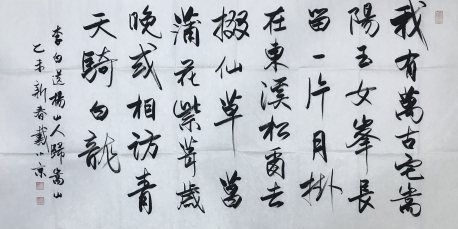 我有萬古宅嵩
陽玉女峯長
留一片月掛
在東溪松爾去
掇仙草菖
蒲花紫茸歲
晚或相訪青
天騎白龍
李白送楊山人歸嵩山
乙未新春戴小京